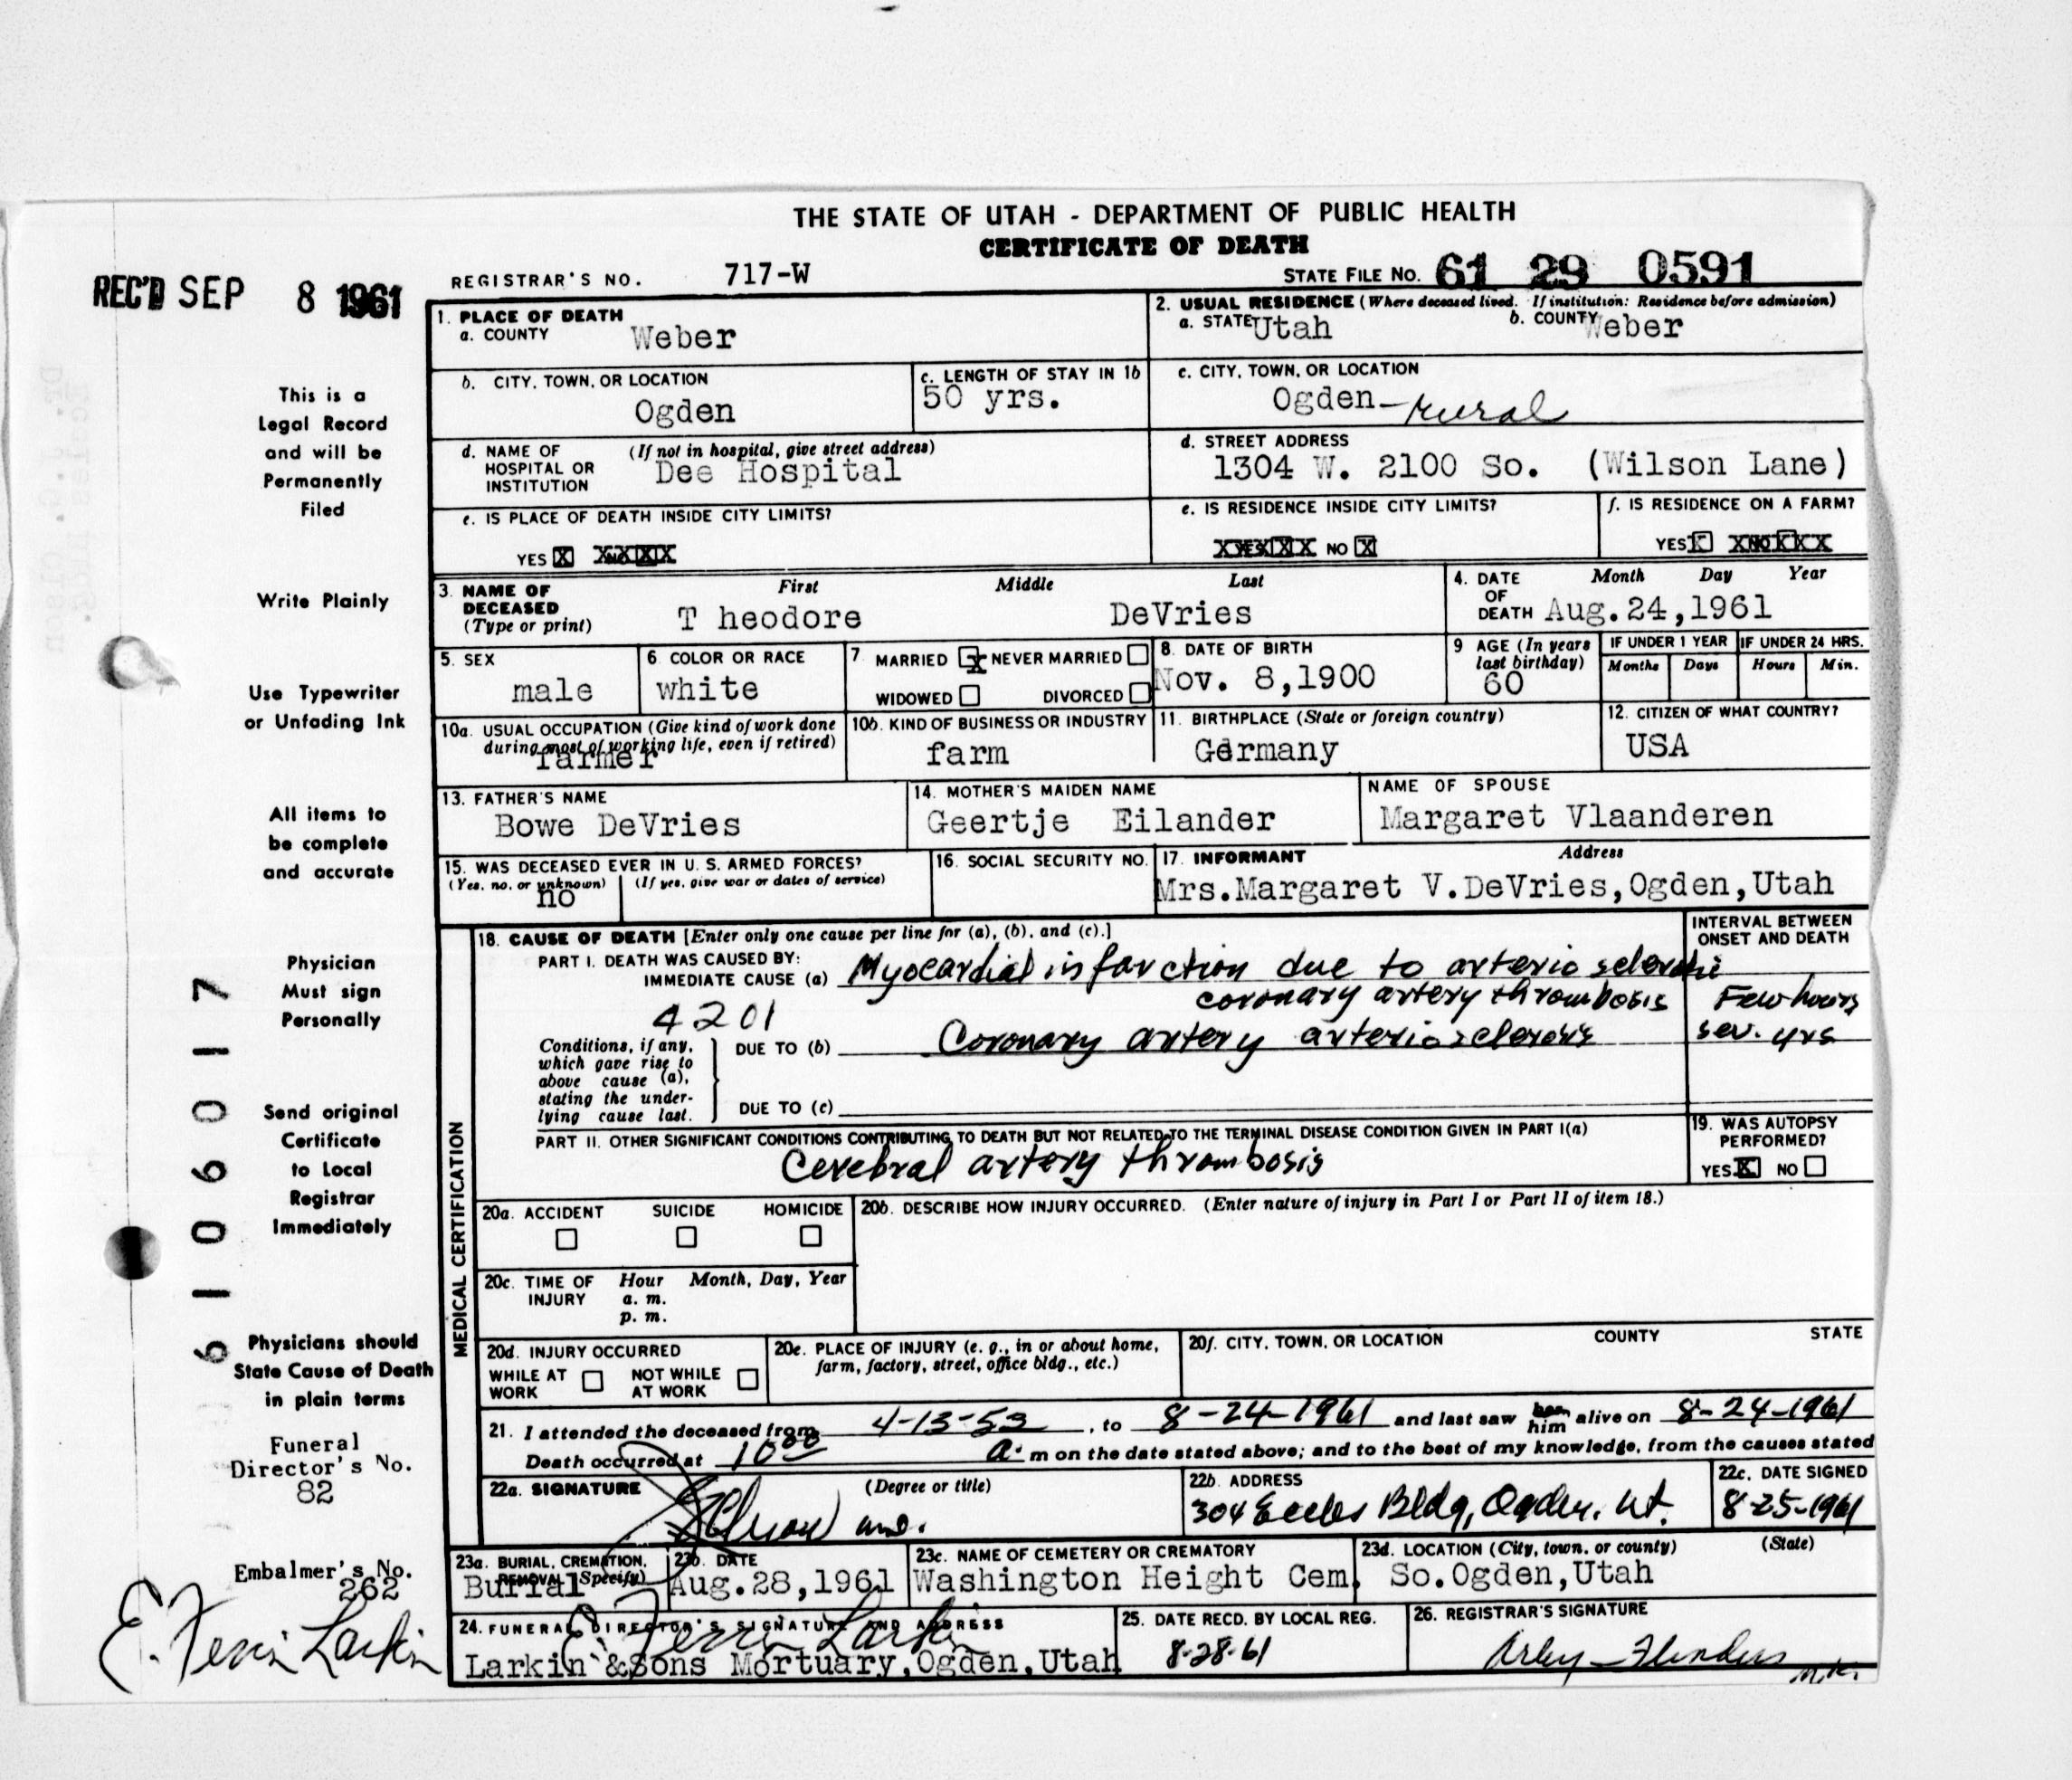 THE STATE OF UTAH - DEPARTMENT OF PUBLIC HEALTH
CERTIFICATE OF DEATH
REC'D SEP 8 1961
REGISTRAR'S NO. 717-W
STATE FILE NO. 61 29 0591
1. PLACE OF DEATH
a. COUNTY Weber
2. USUAL RESIDENCE (Where deceased lived. If institution: Residence before admission)
a. STATE Utah b. COUNTY Weber
b. CITY, TOWN, OR LOCATION
Ogden
c. LENGTH OF STAY IN 1b
50 yrs.
c. CITY, TOWN, OR LOCATION
Ogden - rural
d. NAME OF HOSPITAL OR INSTITUTION (If not in hospital, give street address)
Dee Hospital
d. STREET ADDRESS
1304 W. 2100 So. (Wilson Lane)
e. IS PLACE OF DEATH INSIDE CITY LIMITS?
YES X NO XXXX
e. IS RESIDENCE INSIDE CITY LIMITS?
YES XXXX NO X
f. IS RESIDENCE ON A FARM?
YES X NO XXXX
3. NAME OF DECEASED (Type or print)
First Middle Last
T heodore DeVries
4. DATE OF DEATH Month Day Year
Aug.24,1961
5. SEX
male
6. COLOR OR RACE
white
7. MARRIED X NEVER MARRIED
WIDOWED DIVORCED
8. DATE OF BIRTH
Nov. 8,1900
9 AGE (In years last birthday)
60
IF UNDER 1 YEAR
Months Days
IF UNDER 24 HRS.
Hours Min.
10a. USUAL OCCUPATION (Give kind of work done during most of working life, even if retired)
farmer
10b. KIND OF BUSINESS OR INDUSTRY
farm
11. BIRTHPLACE (State or foreign country)
Germany
12. CITIZEN OF WHAT COUNTRY?
USA
13. FATHER'S NAME
Bowe DeVries
14. MOTHER'S MAIDEN NAME
Geertje Eilander
NAME OF SPOUSE
Margaret Vlaanderen
15. WAS DECEASED EVER IN U. S. ARMED FORCES?
(Yes, no, or unknown) (If yes, give war or dates of service)
no
16. SOCIAL SECURITY NO.
17. INFORMANT Address
Mrs.Margaret V.DeVries,Ogden,Utah
MEDICAL CERTIFICATION
18. CAUSE OF DEATH [Enter only one cause per line for (a), (b), and (c).]
INTERVAL BETWEEN ONSET AND DEATH
PART I. DEATH WAS CAUSED BY:
IMMEDIATE CAUSE (a) Myocardial infarction due to arteriosclerotic
coronary artery thrombosis Few hours
4201
Conditions, if any, which gave rise to above cause (a), stating the underlying cause last.
DUE TO (b) Coronary artery arteriosclerosis sev. yrs
DUE TO (c)
PART II. OTHER SIGNIFICANT CONDITIONS CONTRIBUTING TO DEATH BUT NOT RELATED TO THE TERMINAL DISEASE CONDITION GIVEN IN PART I(a)
Cerebral artery thrombosis
19. WAS AUTOPSY PERFORMED?
YES X NO
20a. ACCIDENT SUICIDE HOMICIDE
20b. DESCRIBE HOW INJURY OCCURRED. (Enter nature of injury in Part I or Part II of item 18.)
20c. TIME OF INJURY Hour Month, Day, Year
a. m.
p. m.
20d. INJURY OCCURRED
WHILE AT WORK NOT WHILE AT WORK
20e. PLACE OF INJURY (e. g., in or about home, farm, factory, street, office bldg., etc.)
20f. CITY, TOWN, OR LOCATION COUNTY STATE
21. I attended the deceased from 4-13-53, to 8-24-1961 and last saw her him alive on 8-24-1961
Death occurred at 10 00 a. m on the date stated above; and to the best of my knowledge, from the causes stated
22a. SIGNATURE (Degree or title)
22b. ADDRESS
304 Eccles Bldg, Ogden, Ut.
22c. DATE SIGNED
8-25-1961
23a. BURIAL, CREMATION, REMOVAL (Specify)
Burial
23b. DATE
Aug.28,1961
23c. NAME OF CEMETERY OR CREMATORY
Washington Height Cem.
23d. LOCATION (City, town, or county) (State)
So.Ogden,Utah
24. FUNERAL DIRECTOR'S SIGNATURE AND ADDRESS
Larkin &Sons Mortuary,Ogden,Utah
25. DATE RECD. BY LOCAL REG.
8-28-61
26. REGISTRAR'S SIGNATURE
This is a
Legal Record
and will be
Permanently
Filed
Write Plainly
Use Typewriter
or Unfading Ink
All items to
be complete
and accurate
Physician
Must sign
Personally
Send original
Certificate
to Local
Registrar
Immediately
Physicians should
State Cause of Death
in plain terms
Funeral
Director's No.
82
Embalmer's No.
262
6106017